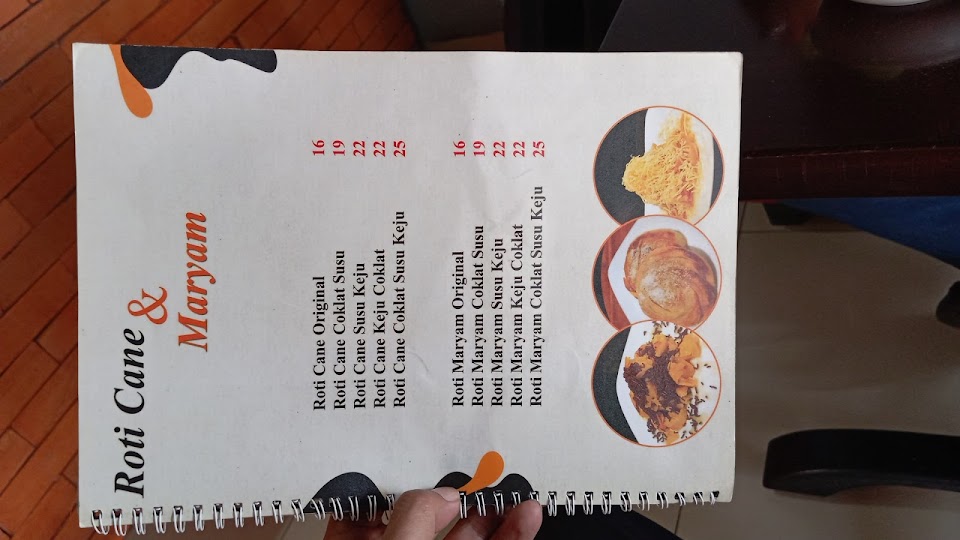 Roti Cane
&
Maryam
Roti Cane Original 16
Roti Cane Coklat Susu 19
Roti Cane Susu Keju 22
Roti Cane Keju Coklat 22
Roti Cane Coklat Susu Keju 25
Roti Maryam Original 16
Roti Maryam Coklat Susu 19
Roti Maryam Susu Keju 22
Roti Maryam Keju Coklat 22
Roti Maryam Coklat Susu Keju 25